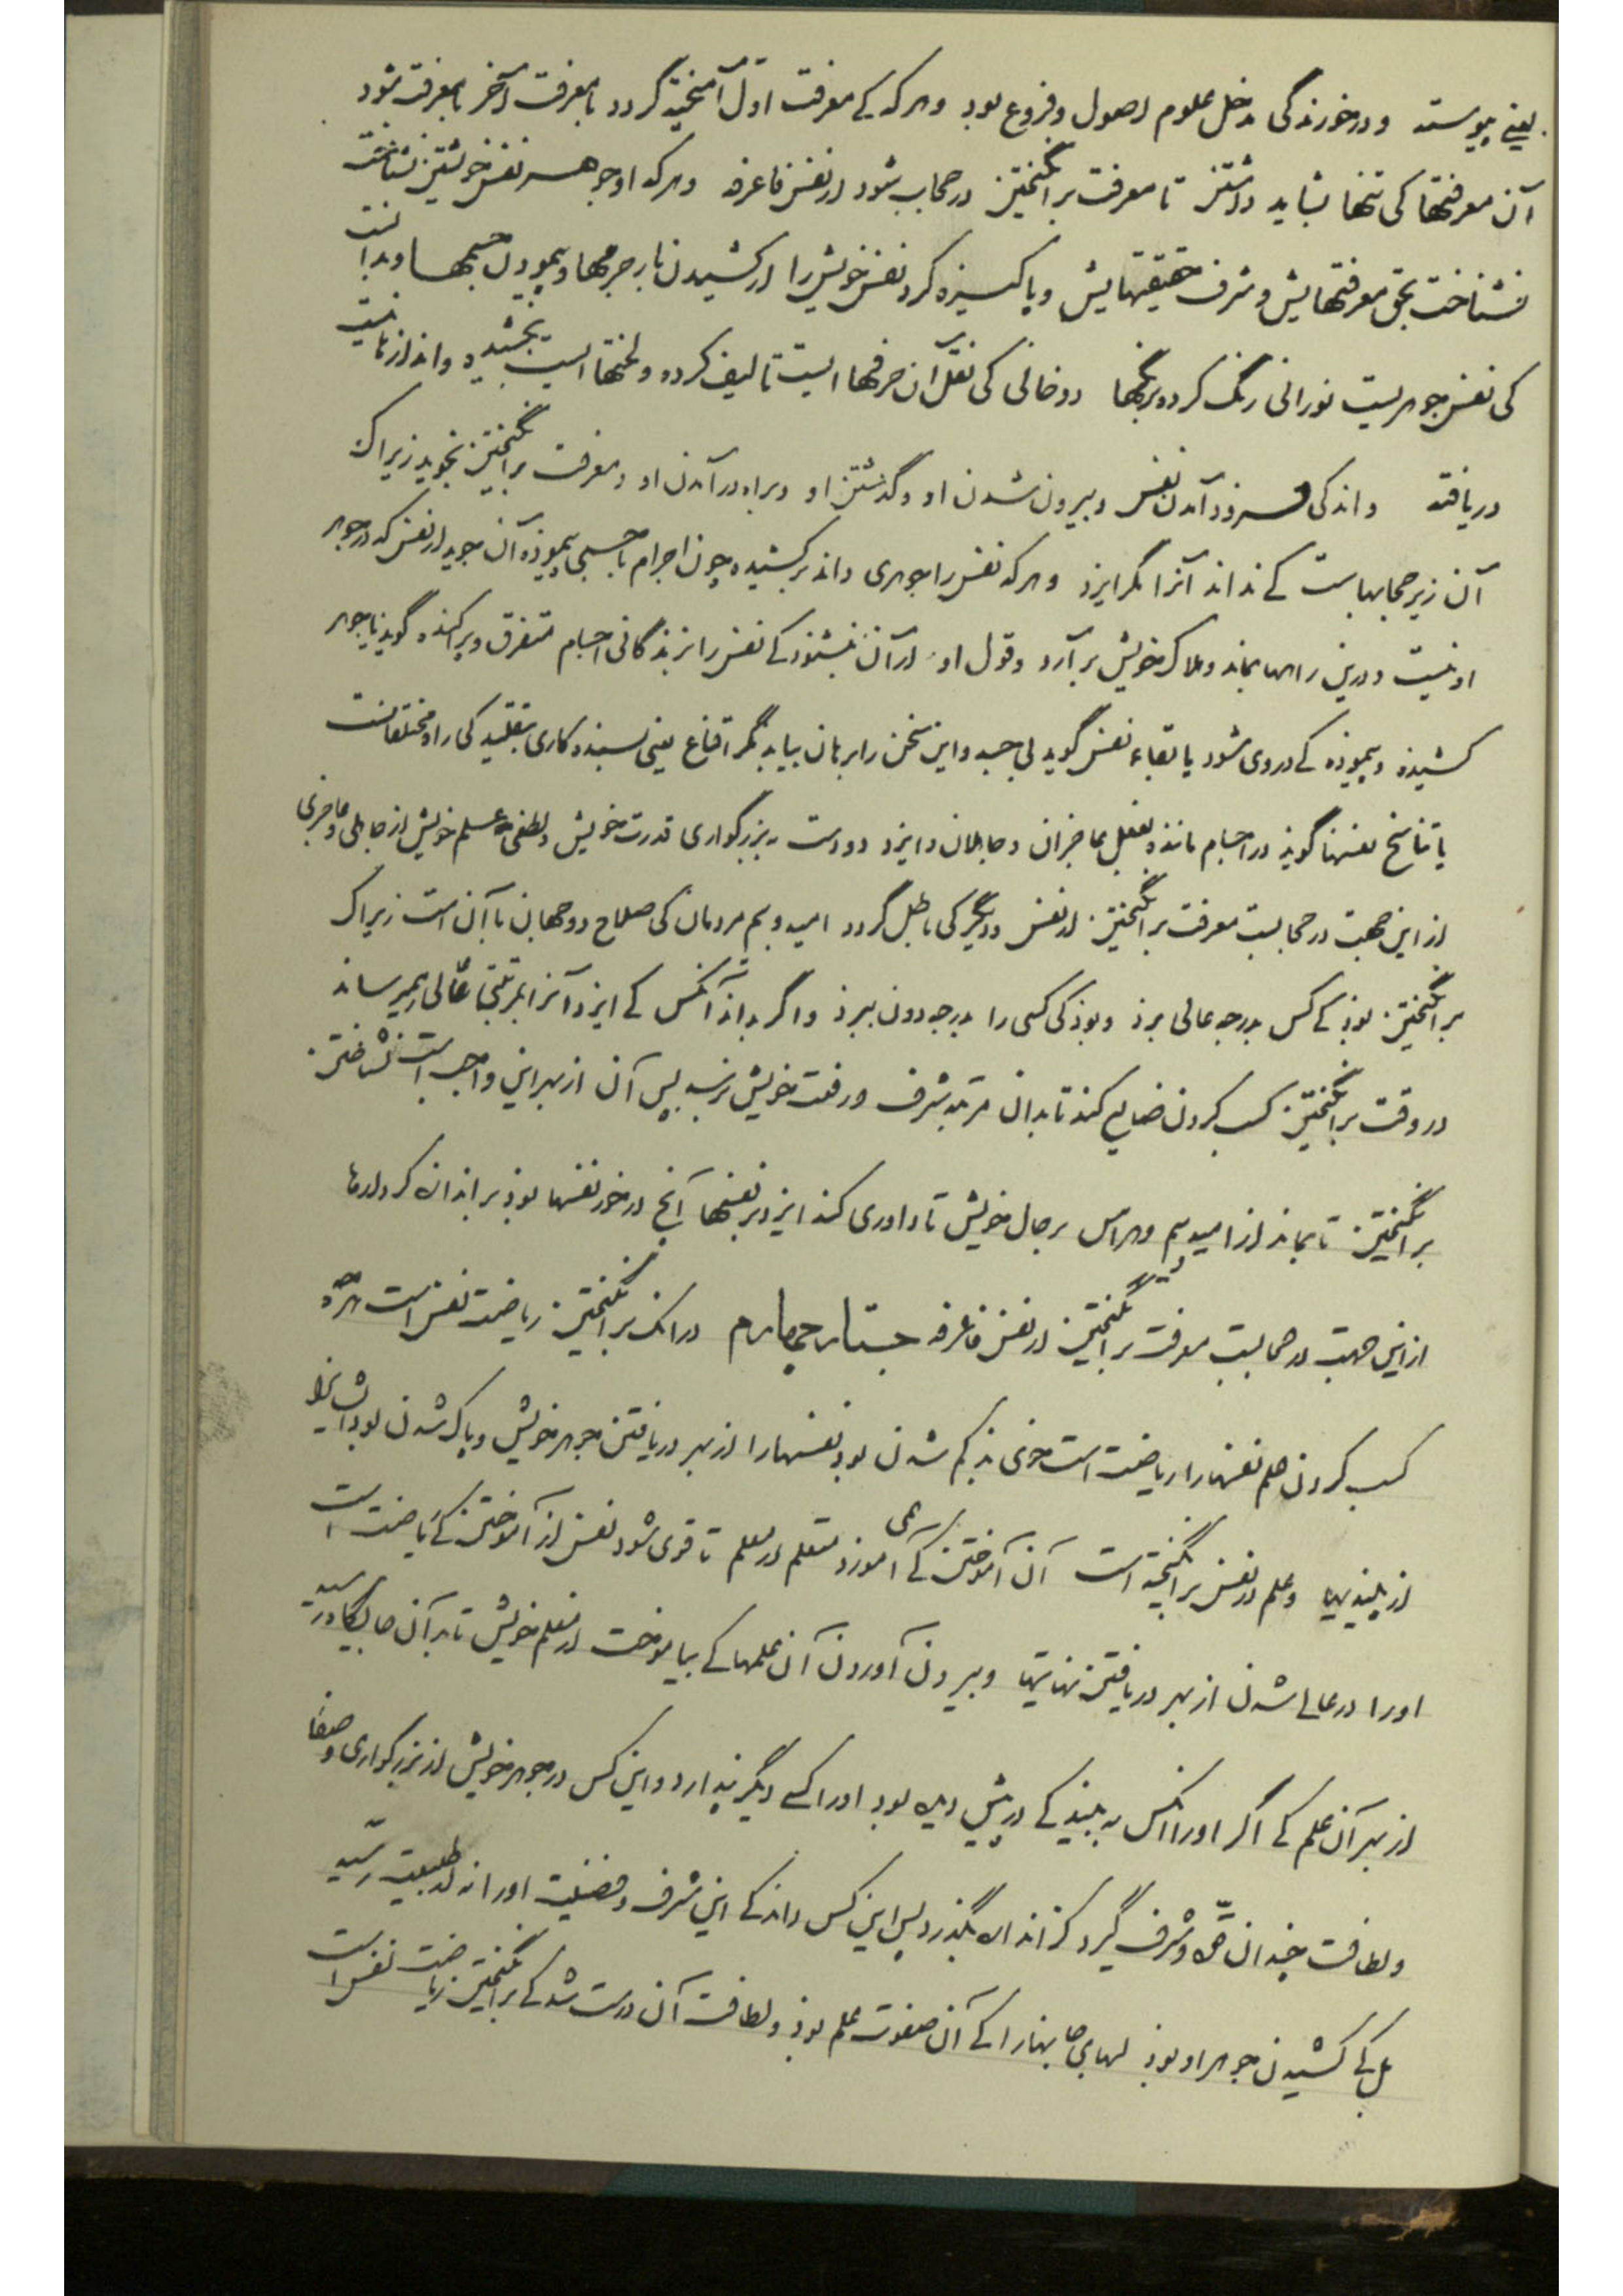 یعنی پیوسته و درخورندگی مدخل علوم اصول و فروع بود و هر که کے معرفت اول آمیخته گردد با معرفت آخر با معرفت شود
آن معرفتها کی تنها نشاید داشتن تا معرفت برانگیختن در حجاب شود از نفس فاعرفه و هر که او جوهر نفس خویشتن نشناخت
نشناخت بحق معرفتهایش و شرف حقیقتهایش و پاکیزه کرد نفس خویش را از کشیدن بار جرمها و پیمودن جسمها و بدانست
کی نفس جوهریست نورانی رنگ کرده برنگها دو خانی کی نقل آن حرفها است تالیف کرده و لختها است بخشیده و اندازه
دریافته و اندکی فرود آمدن نفس و بیرون شدن او و گذشتن او و براه در آمدن او و معرفت برانگیختن نجوید زیراک
آن زیر حجابهاست کے نداند آنرا مگر ایزد و هر که نفس را جوهری داند برکشیده چون اجرام یا جسمی پیموده آن جوید از نفس که در جوهر
او نیست و درین راهها بماند و هلاک خویش برآرد و قول او از آن نشنود کے نفس را بزندگانی اجسام متفرق و پراکنده گوید یا جوهر
کشیده و پیموده کے در وی شود یا بقاء نفس گوید بی جسد و این سخن را برهان نیابد مگر اقناع یعنی بسنده کاری بتقلید کی راه مختلفانست
یا تناسخ نفسها گوید در اجسام مانند بفعل عاجزان و جاهلان و ایزد دور است بزرگواری قدرت خویش و لطفی علم خویش از جاهلی و عاجزی
از این جهت در حجابست معرفت برانگیختن از نفس و دیگر کی باطل گردد امید و بیم مردمان کی صلاح دو جهان با آن است زیراک
برانگیختن بود کے کس بدرجه عالی برد و بود کی کسی را بدرجه دون ببرد و اگر بداند آنکس کے ایزد آنرا بمرتبتی عالی همیرساند
در وقت برانگیختن کسب کردن ضایع کند تا بدان مرتبه شرف و رفعت خویش نرسد پس آن از بهر این واجب است نشناختن
برانگیختن تا بماند از امید و بیم و هراس بر حال خویش تا داوری کند ایزد بر نفسها آنچ در خور نفسها بود بر اندازه کردارها
از این جهت در حجابست معرفت برانگیختن از نفس فاعرفه جستار چهارم در انک برانگیختن ریاضت نفس است هرچه
کسب کردن علم نفسها را ریاضت است خوی بذ کم شدن بود نفسها را از بهر دریافتن جوهر خویش و پاک شدن بود ایشانرا
از پلیدیها و علم در نفس برانگیخته است آن آموختن کے آموزد متعلم از معلم تا قوی شود نفس از آموختن کے ریاضت است
او را در عالے شدن از بهر دریافتن نهایتها و بیرون آوردن آن علمها کے بیاموخت از معلم خویش تا بر آن جایگاه رسید
از بهر آن علم کے اگر او را انکس به بیند کے در پیش دیده بود او را کسے دیگر پندارد و این کس در جوهر خویش از بزرگواری و صفا
و لطافت چندان حظ و شرف گیرد کز اندازه بگذرد پس این کس داند کے این شرف و فضیلت او را نه از طبیعت رسید
بل کے کشیدن جوهر او بود لهابی جا بنهارا کے آن صفوت علم بود و لطافت آن درست شد کے برانگیختن ریاضت نفس است